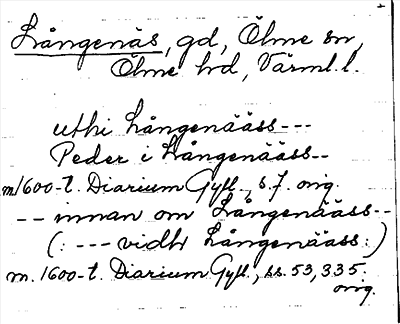 Långenäs, gd, Ölme sn,
Ölme hd, Värml. l.
uthi Långenääss---
Peder i Långenääss--
m 1600-t. Diarium Gyll., s. 7. orig.
-- innan om Långenääss--
(: --- vidh Långenääss :)
m. 1600-t. Diarium Gyll., ss. 53, 335.
orig.